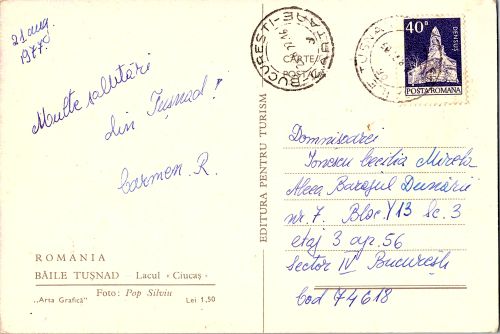 21 aug.
1977.
Multe salutări
din Tușnad!
Carmen R.
ROMÂNIA
BĂILE TUȘNAD — Lacul «Ciucaș»
Foto: Pop Silviu
„Arta Grafică” Lei 1,50
EDITURA PENTRU TURISM
BUCUREȘTI
CARTE
POȘTALĂ
40B
DENSUȘ
POSTA ROMANA
Domnișoarei
Ionescu Cecilia Mirela
Aleea Barajul Dunării
nr. 7. Bloc. Y13 Sc. 3
etaj 3 ap. 56
Sector IV București
Cod 74618